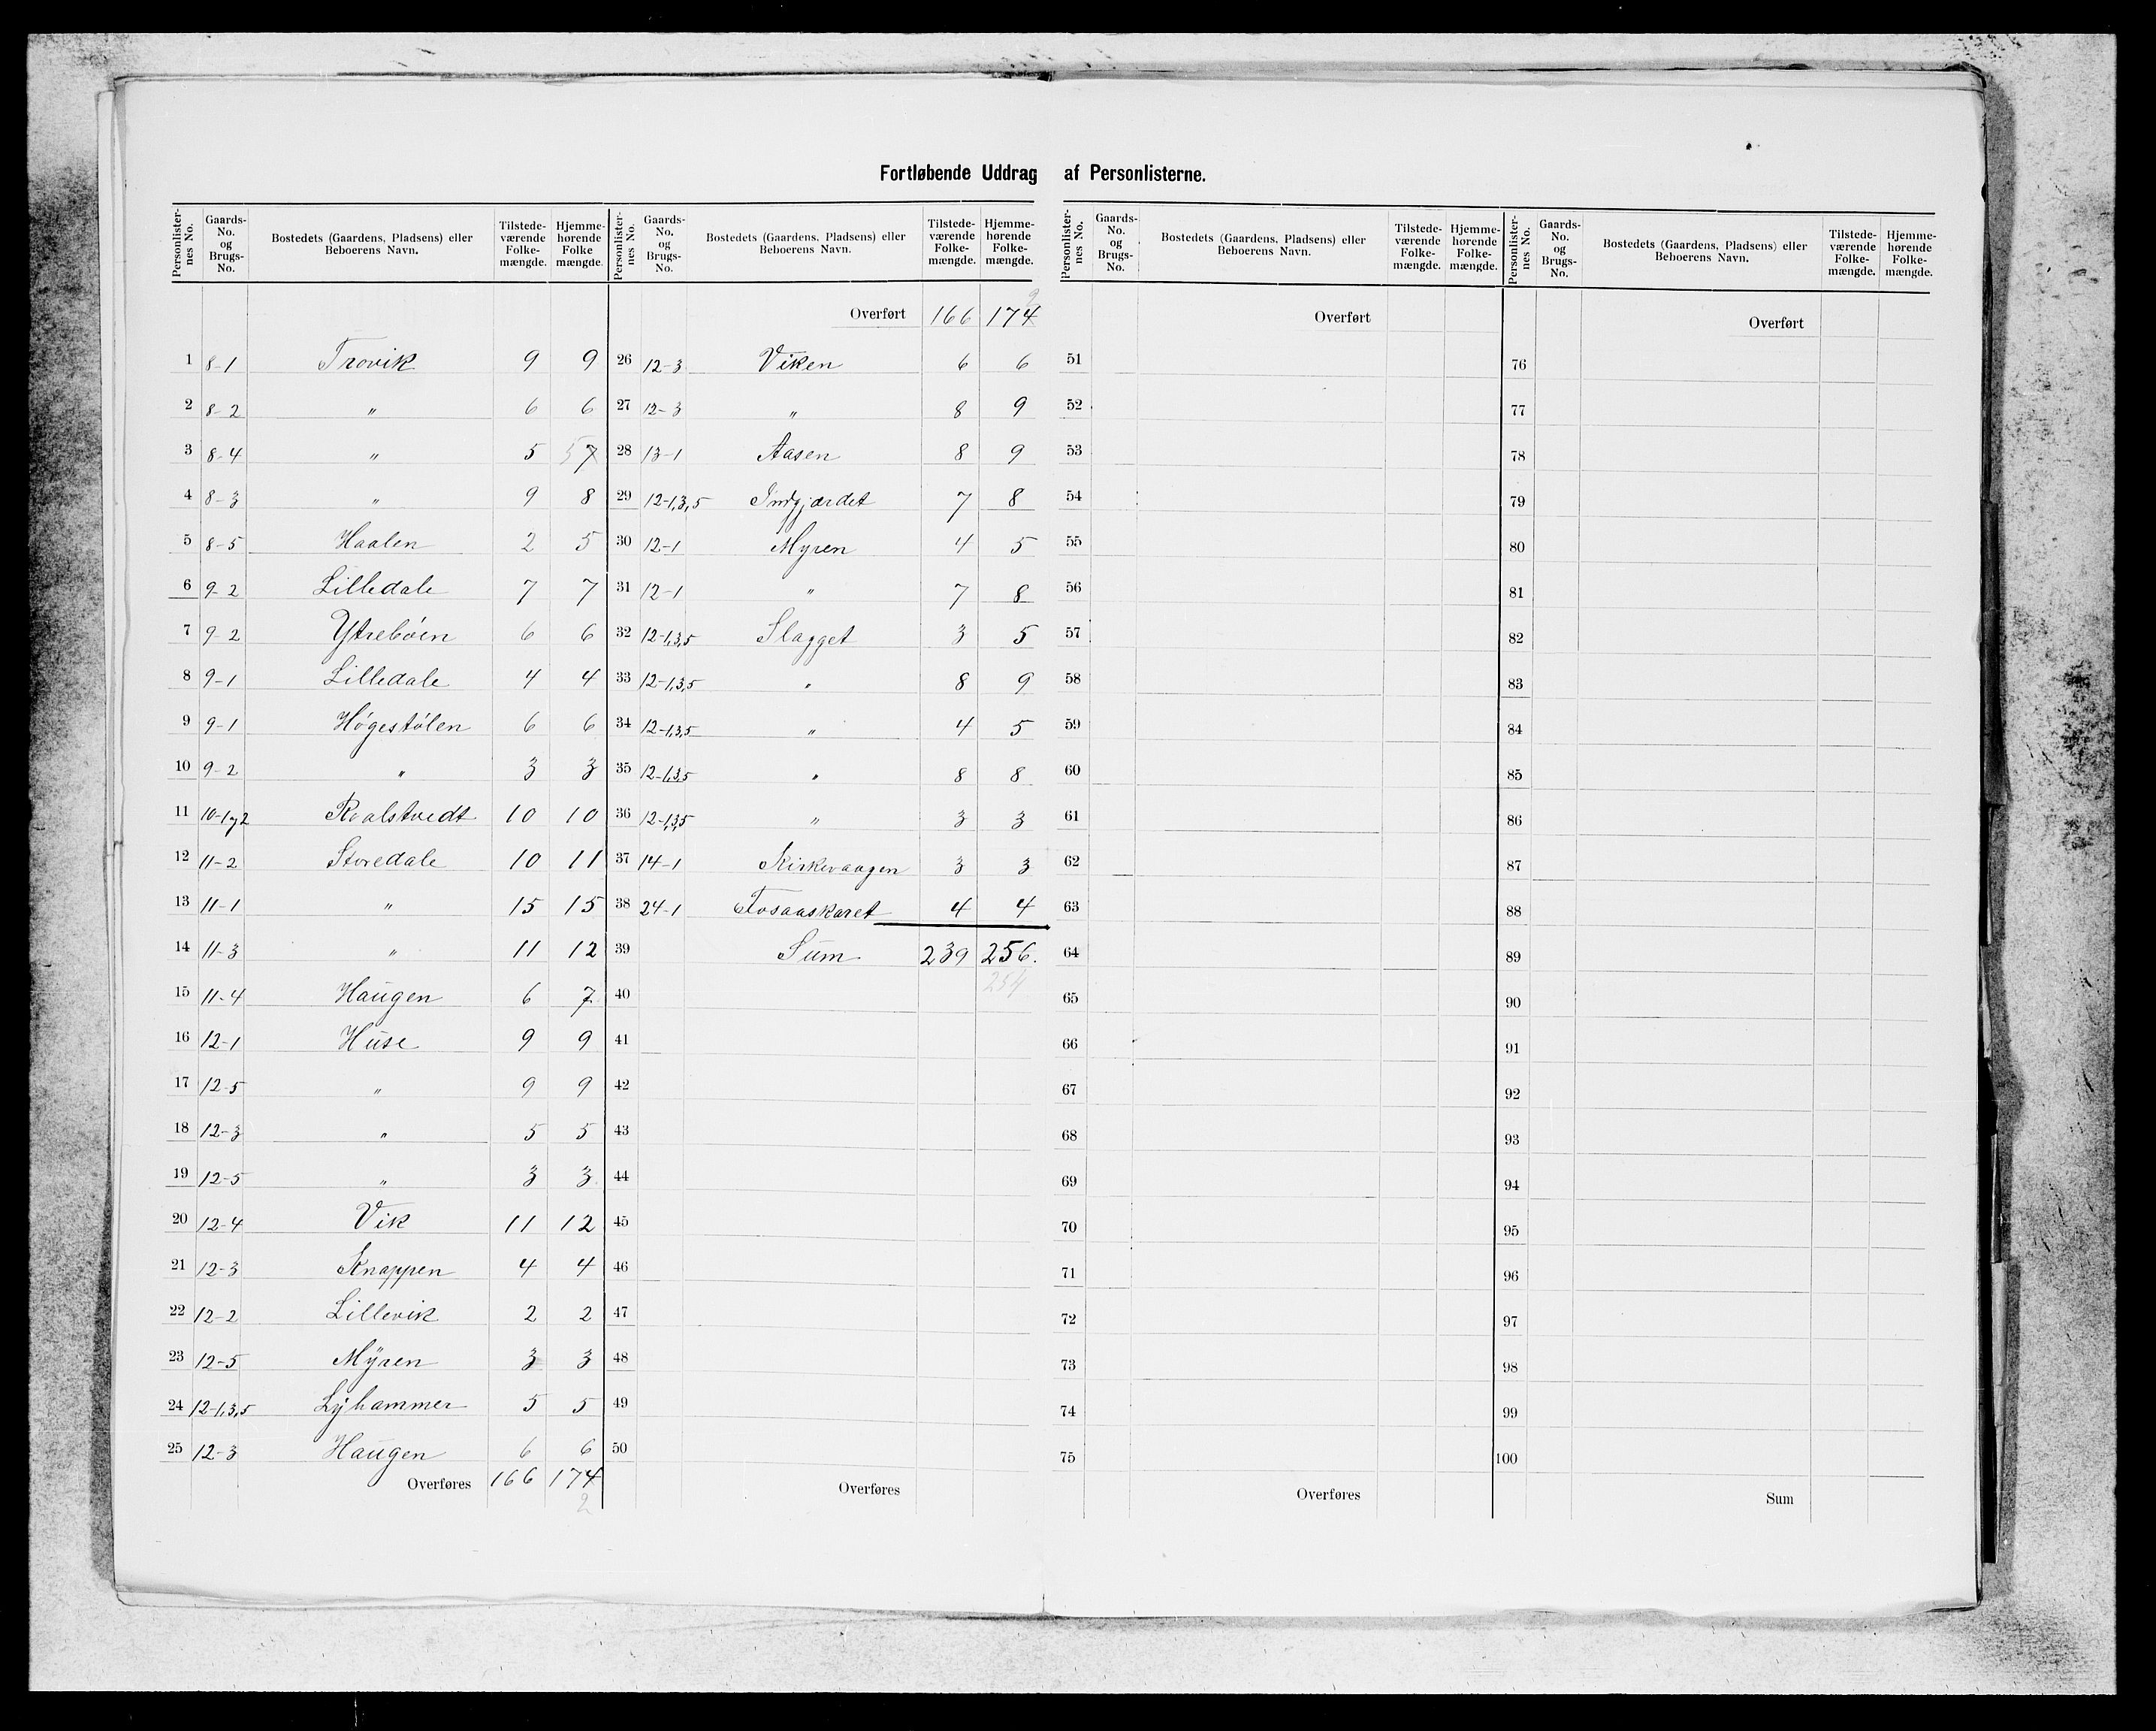 Fortløbende Uddrag af Personlisterne.
Personlister-nes No. | Gaards-No. og Brugs-No. | Bostedets (Gaardens, Pladsens) eller Beboerens Navn. | Tilstede-værende Folke-mængde. | Hjemme-hørende Folke mængde.
1 8-1 Trovik 9 9
2 8-2 " 6 6
3 8-4 " 5 5 7
4 8-3 " 9 8
5 8-5 Haalen 2 5
6 9-2 Lilledale 7 7
7 9-2 Ytrebøen 6 6
8 9-1 Lilledale 4 4
9 9-1 Høgestølen 6 6
10 9-2 " 3 3
11 10-1 og 2 Roalstvedt 10 10
12 11-2 Storedale 10 11
13 11-1 " 15 15
14 11-3 " 11 12
15 11-4 Haugen 6 7
16 12-1 Huse 9 9
17 12-5 " 9 9
18 12-3 " 5 5
19 12-5 " 3 3
20 12-4 Vik 11 12
21 12-3 Knappen 4 4
22 12-2 Lillevik 2 2
23 12-5 Myren 3 3
24 12-1,3,5 Lyhammer 5 5
25 12-3 Haugen 6 6
Overføres 166 174
2
Personlister-nes No. | Gaards-No. og Brugs-No. | Bostedets (Gaardens, Pladsens) eller Beboerens Navn. | Tilstede-værende Folke-mængde. | Hjemme-hørende Folke-mængde.
2
Overført 166 174
26 12-3 Viken 6 6
27 12-3 " 8 9
28 13-1 Aasen 8 9
29 12-1,3,5 Indgjærdet 7 8
30 12-1 Myren 4 5
31 12-1 " 7 8
32 12-1,3,5 Slagget 3 5
33 12-1,3,5 " 8 9
34 12-1,3,5 " 4 5
35 12-1,3,5 " 8 8
36 12-1,3,5 " 3 3
37 14-1 Kirkevaagen 3 3
38 24-1 Tosaaskaret 4 4
39 Sum 239 256.
254
40
41
42
43
44
45
46
47
48
49
50
Overføres
Personlister-nes No. | Gaards-No. og Brugs-No. | Bostedets (Gaardens, Pladsens) eller Beboerens Navn. | Tilstede-værende Folke-mængde. | Hjemme-hørende Folke-mængde.
Overført
51
52
53
54
55
56
57
58
59
60
61
62
63
64
65
66
67
68
69
70
71
72
73
74
75
Overføres
Personlister-nes No. | Gaards-No. og Brugs-No. | Bostedets (Gaardens, Pladsens) eller Beboerens Navn. | Tilstede-værende Folke-mængde. | Hjemme-hørende Folke-mængde.
Overført
76
77
78
79
80
81
82
83
84
85
86
87
88
89
90
91
92
93
94
95
96
97
98
99
100
Sum